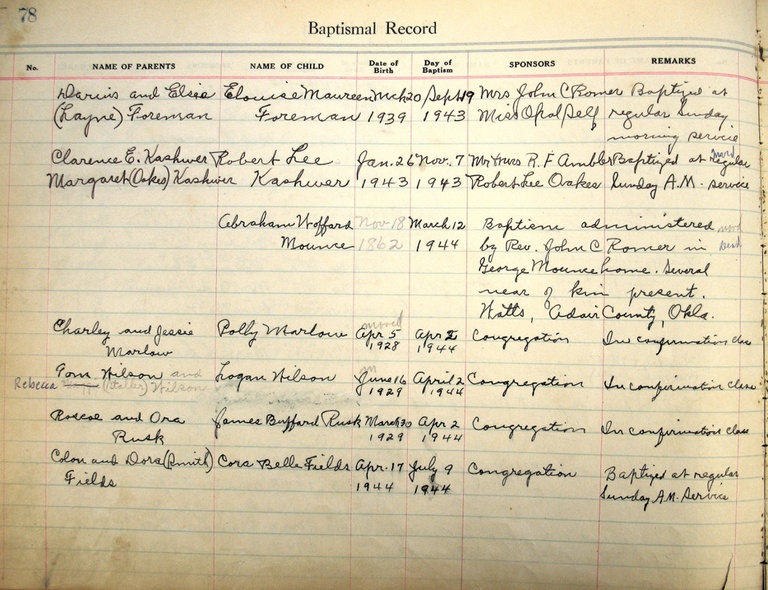 78
Baptismal Record
No. NAME OF PARENTS NAME OF CHILD Date of Birth Day of Baptism SPONSORS REMARKS
Darius and Elsie Elouise Maureen Mch 20 Sept 19 Mrs John C Romer Baptized at
(Layne) Foreman Foreman 1939 1943 Miss Opal Self regular Sunday
morning service
Clarence E. Kashwer Robert Lee Jan. 26 Nov. 7 Mr & Mrs R. F. Ambler Baptized at regular
Margaret (Oakes) Kashwer Kashwer 1943 1943 Robert Lee Oakes Sunday A.M. service
Abraham Woffard Nov 18 March 12 Baptism administered
Mounce 1862 1944 by Rev. John C Romer in
George Mounce home. Several
near of kin present.
Watts, Adair County, Okla.
moved
Charley and Jessie Polly Marlow Apr 5 Apr 2 Congregation In confirmation class
Marlow 1928 1944
Tom Wilson and Logan Wilson June 16 April 2 Congregation In confirmation class
Rebecca Wilson 1929 1944
Roscoe and Ora James Bufford Rusk March 30 Apr 2 Congregation In confirmation class
Rusk 1929 1944
Colon and Dora (Smith) Cora Belle Fields Apr. 17 July 9 Congregation Baptized at regular
Fields 1944 1944 Sunday A.M. Service